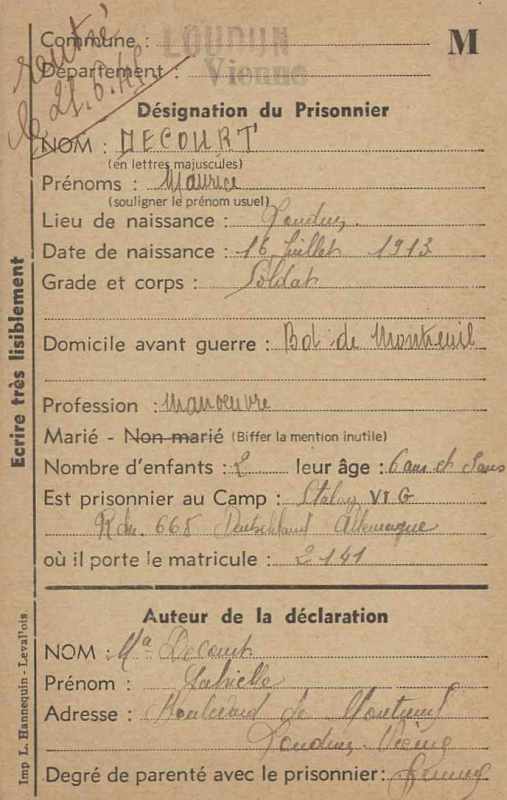 rentré
le 21.6.41
Commune : LOUDUN
M
Département : Vienne
Désignation du Prisonnier
NOM : DECOURT
(en lettres majuscules)
Prénoms : Maurice
(souligner le prénom usuel)
Lieu de naissance : Loudun.
Date de naissance : 16 Juillet 1913
Grade et corps : Soldat
Domicile avant guerre : Bd de Montreuil
Profession : Manoeuvre
Marié - Non marié (Biffer la mention inutile)
Nombre d'enfants : 2 leur âge : 6 ans et ans
Est prisonnier au Camp : Stalag VI G
Kdo. 665 Deutschland Allemagne
où il porte le matricule : 2141
Auteur de la déclaration
NOM : Decourt
Prénom :
Adresse : Boulevard de Montreuil
Loudun Vienne
Degré de parenté avec le prisonnier : femme
Ecrire très lisiblement
Imp L. Hannequin - Leval'ois